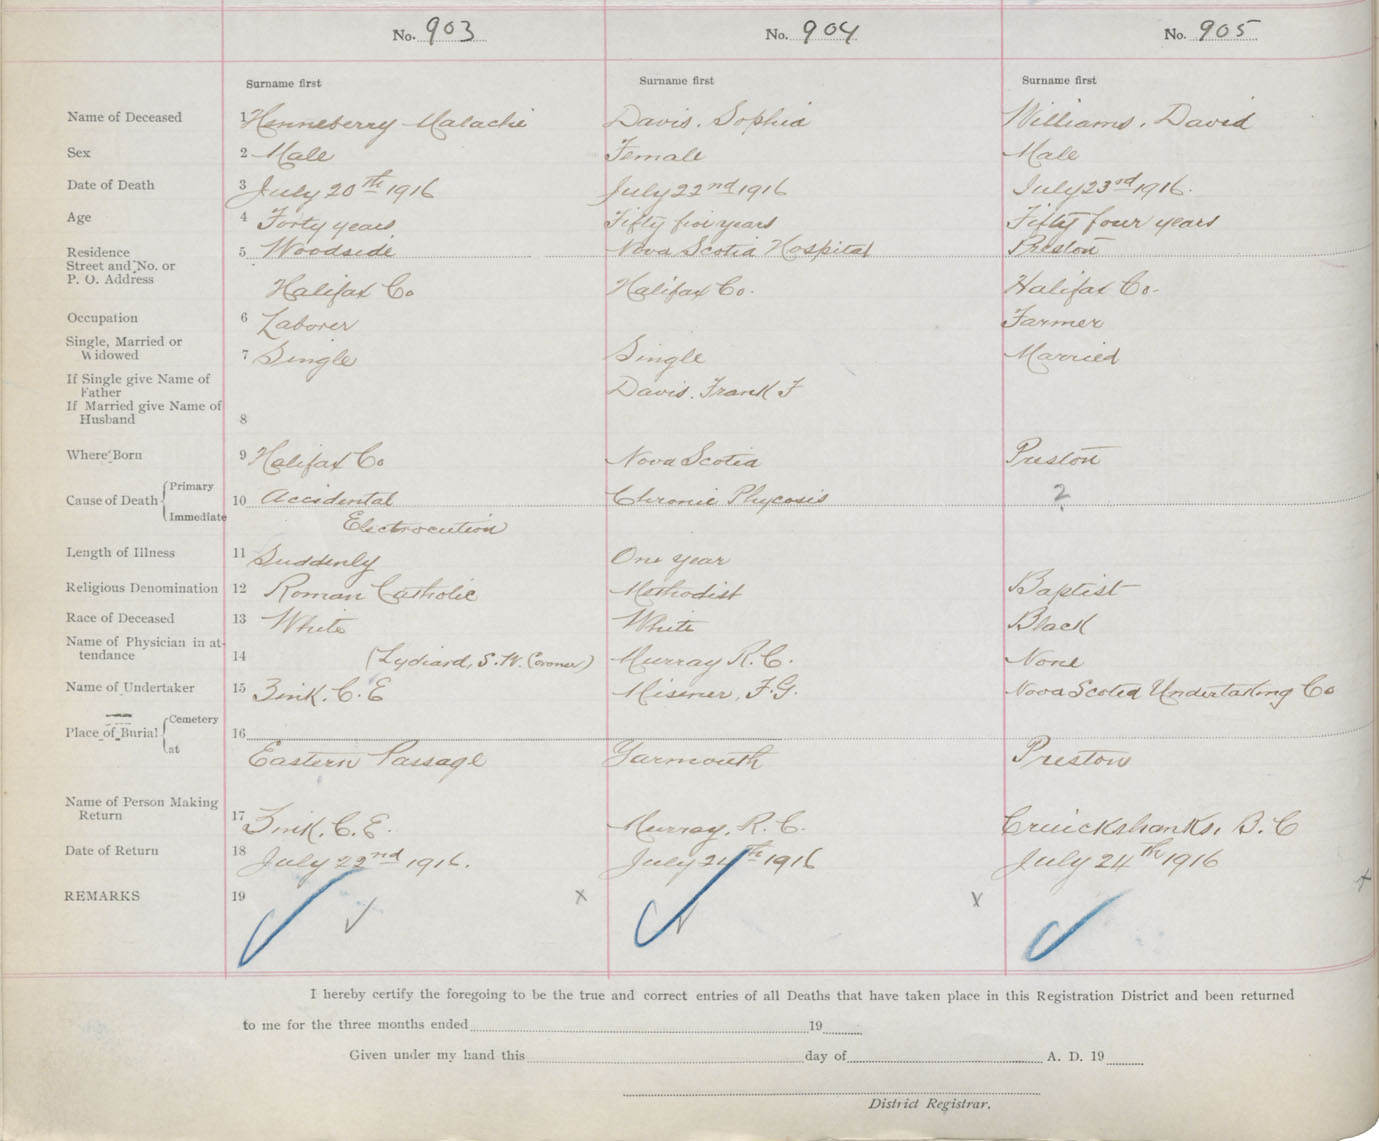 No. 903 No. 904 No. 905
Surname first Surname first Surname first
Name of Deceased 1 Henneberry Malachi Davis, Sophia Williams, David
Sex 2 Male Female Male
Date of Death 3 July 20th 1916 July 22nd 1916 July 23rd 1916.
Age 4 Forty years Fifty five years Fifty four years
Residence 5 Woodside Nova Scotia Hospital Preston
Street and No. or
P. O. Address Halifax Co Halifax Co. Halifax Co.
Occupation 6 Laborer Farmer
Single, Married or
Widowed 7 Single Single Married
If Single give Name of
Father Davis. Frank F
If Married give Name of
Husband 8
Where Born 9 Halifax Co Nova Scotia Preston
Primary
Cause of Death 10 Accidental Chronic Phycosis ?
Immediate Electrocution
Length of Illness 11 Suddenly One year
Religious Denomination 12 Roman Catholic Methodist Baptist
Race of Deceased 13 White White Black
Name of Physician in at-
tendance 14 (Lydiard, S. W. Coroner) Murray R. C. None
Name of Undertaker 15 Zink. C. E Misener, F. G. Nova Scotia Undertaking Co
Cemetery
Place of Burial 16
at Eastern Passage Yarmouth Preston
Name of Person Making
Return 17 Zink, C. E. Murray, R. C. Cruickshanks, B. C
Date of Return 18 July 22nd 1916. July 24th 1916 July 24th 1916
REMARKS 19
I hereby certify the foregoing to be the true and correct entries of all Deaths that have taken place in this Registration District and been returned
to me for the three months ended 19
Given under my hand this day of A. D. 19
District Registrar.